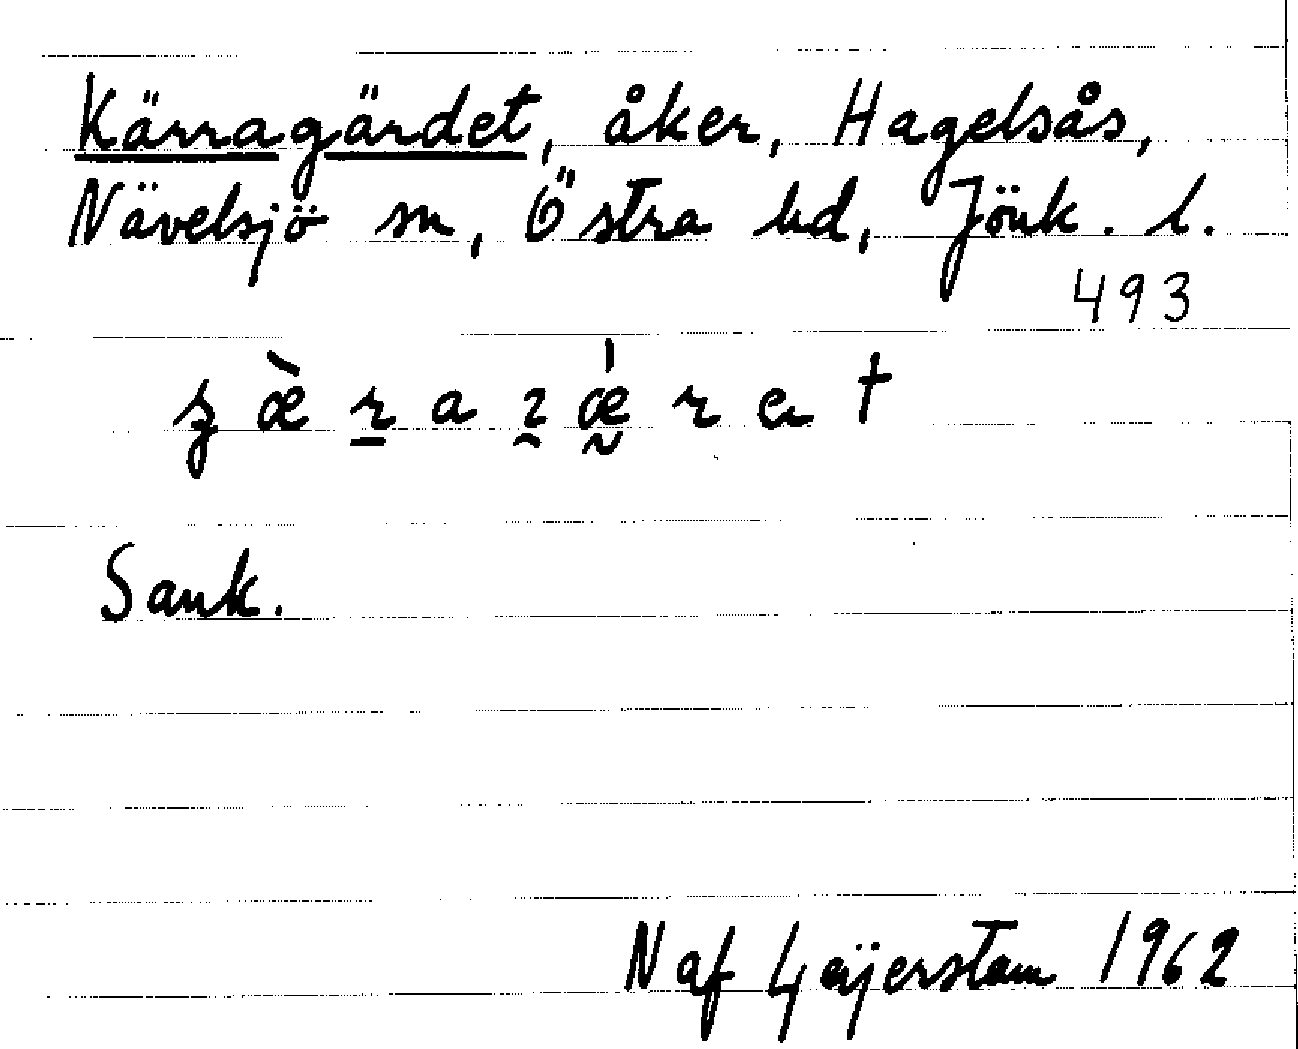 Kärragärdet, åker, Hagelsås,
Nävelsjö sn, Östra hd, Jönk. l.
493
Sank.
N af Geijerstam 1962